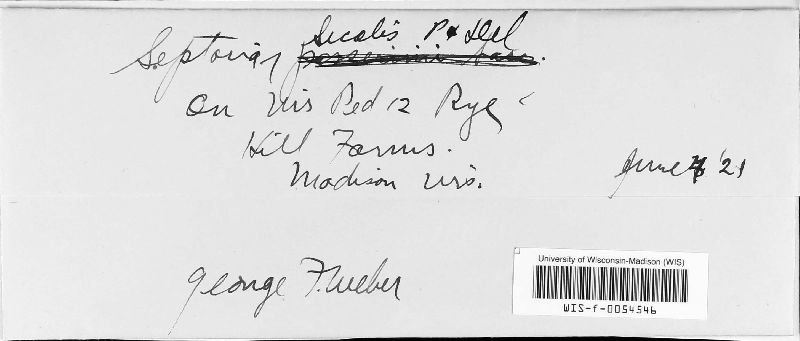 Secalis P & Del
Septoria passerinii Sacc.
on Wis Ped 12 Rye
Hill Farms.
Madison Wis.
June '21
George F. Weber
University of Wisconsin-Madison (WIS)
WIS-f-0054546